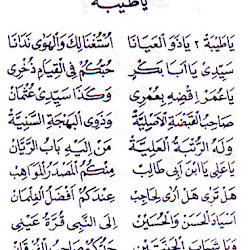 يَاطَيْبَةْ
يَاطَيْبَةْ ؛ يَاذَوَا الْعَيَانَا اشْتَقْنَالِكْ وَالْهَوَى نَدَانَا
سَيِّدِى يَا اَبَا بَكَرٍ حُبُّكُمْ فِي الْقِيَامِ ذُخْرِى
يَاعُمَرْ اِقْضِهِ بِعُمْرِى وَكَذَا سَيِّدِى عُثْمَانْ
صَاحِبُ الْقَبْضَةِ الْاَصِيلَةْ وَذَوِى الْبَهْجَةِ السَّنِيَّةْ
وَلَهُ الرُّتْبَةُ الْعَلِيَّةْ مَنْ اِلَيْهِ بَابُ الرَّيَّانْ
يَاعَلِى يَا ابْنَ اَبِى طَالِبْ مِنْكُمُ الْمَصْدَرُ الْمَوَاهِبْ
هَلْ تَرَى هَلْ اُرَى لِحَاجِبْ عِنْدَكُمْ اَفْضَلُ الْغِلْمَانْ
اَسْيَادُ الْحَسَنْ وَالْحُسَيْنِ اِلَى النَّبِيِّ قُرَّةُ عَيْنِى